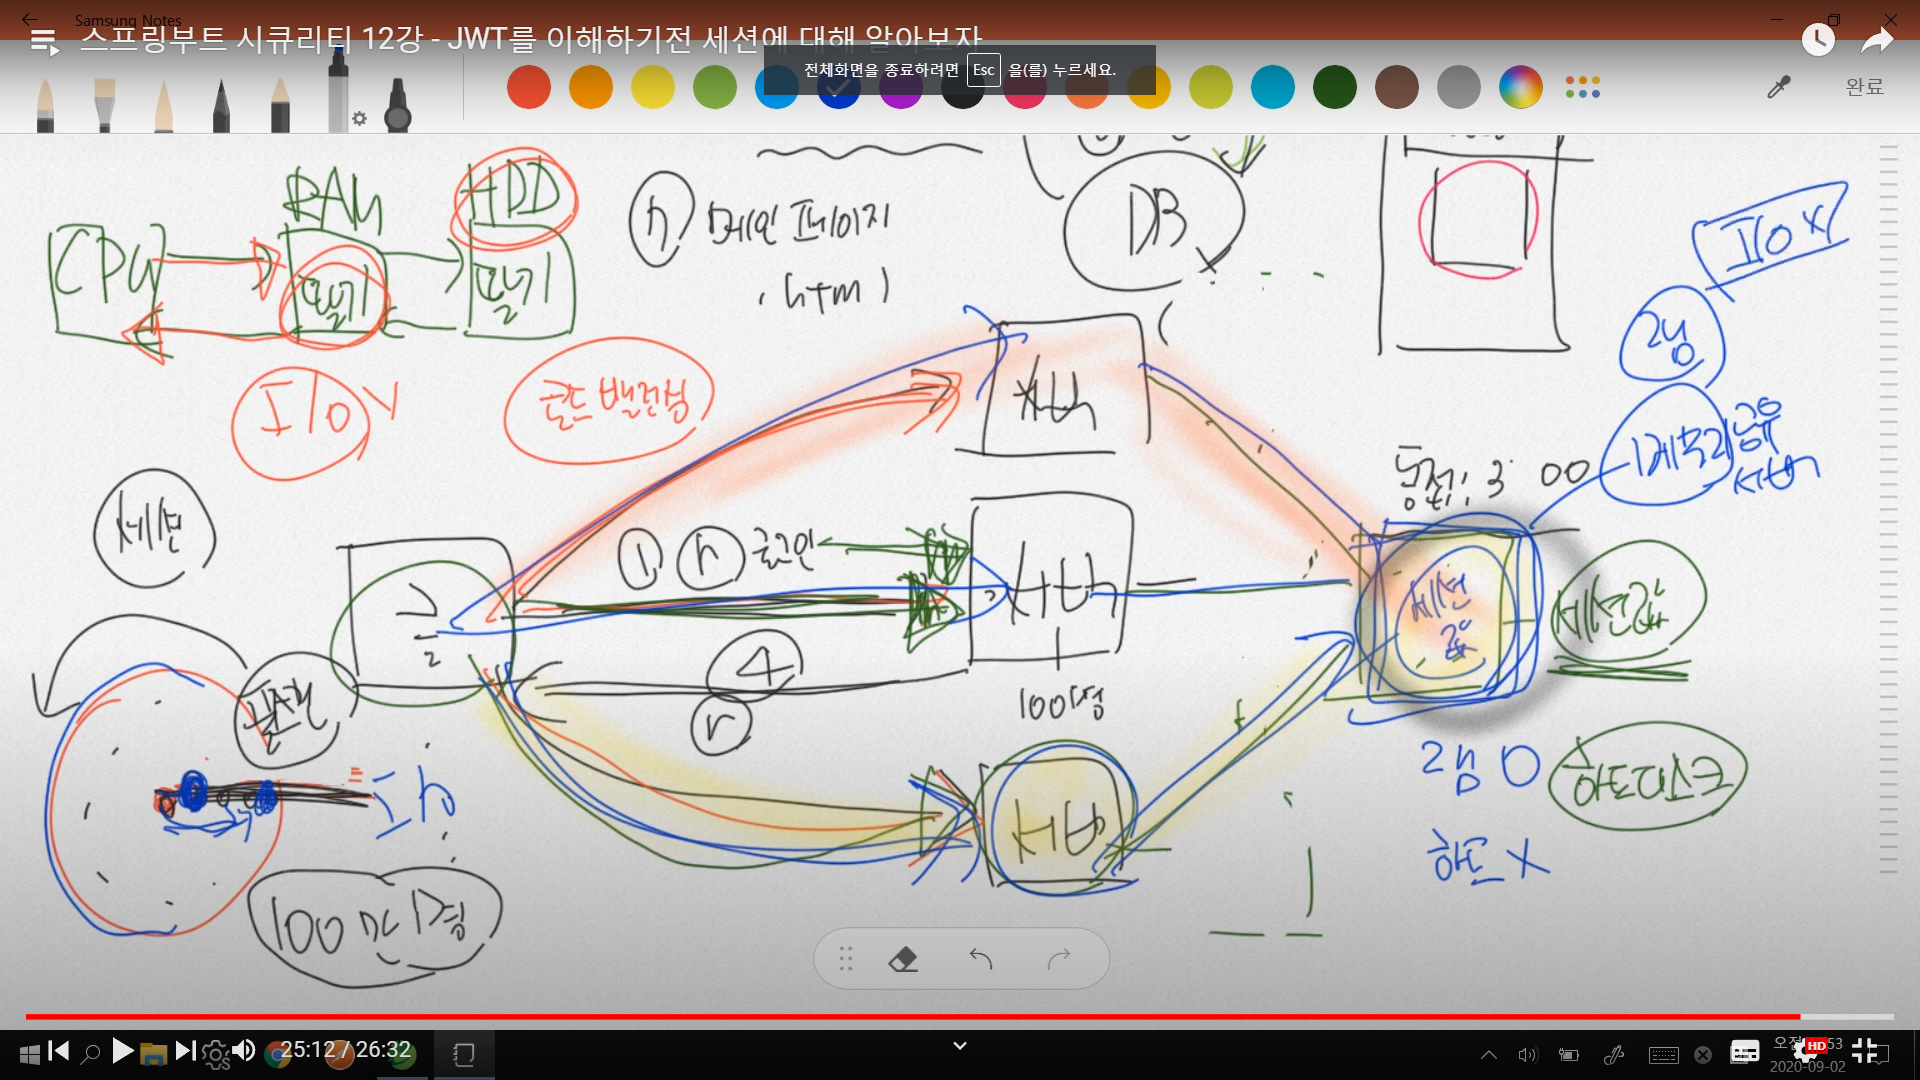 Samsung Notes
스프링부트 시큐리티 12강 - JWT를 이해하기전 세션에 대해 알아보자
전체화면을 종료하려면 Esc 을(를) 누르세요.
완료
CPU
RAM
HDD
딸기
딸기
I/O Y
로드밸런싱
메인 페이지
.html
DB
I/O X
램
메모리공유
서버
동접! 300
세션
서버
1
r
로그인
서버
세션
세션값
100명
4
r
서버
램 O
하드디스크
하드 X
I/O
100
25:12 / 26:32
HD
2020-09-02